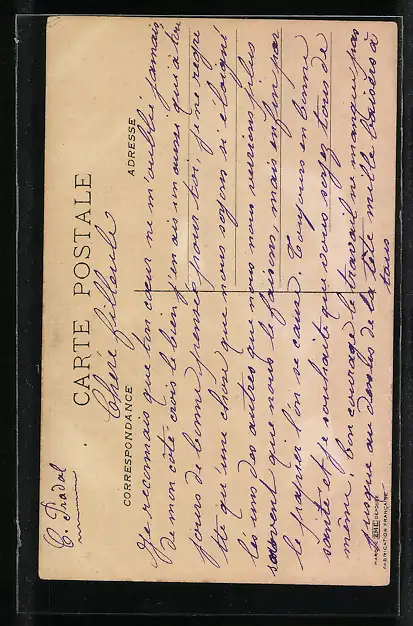 C. Pradal
CARTE POSTALE
CORRESPONDANCE
ADRESSE
Chère filleule
Je reconnais que ton cœur ne m'oublie jamais,
de mon côté crois le bien j'en ais
jours de bonne pensée pour toi, je ne regr
tte qu'une chose que nous soyons si éloigné
les uns des autres que nous nous verrions plus
souvent que nous le faisons, mais enfin par
le papier l'on se cause. Toujours en bonne
santé et je souhaite que vous soyez tous de
même. Bon courage le travail ne manque pas
jusque au dessus de la tête mille baisers à
tous
MARQUE ELD DÉPOSÉE
FABRICATION FRANÇAISE